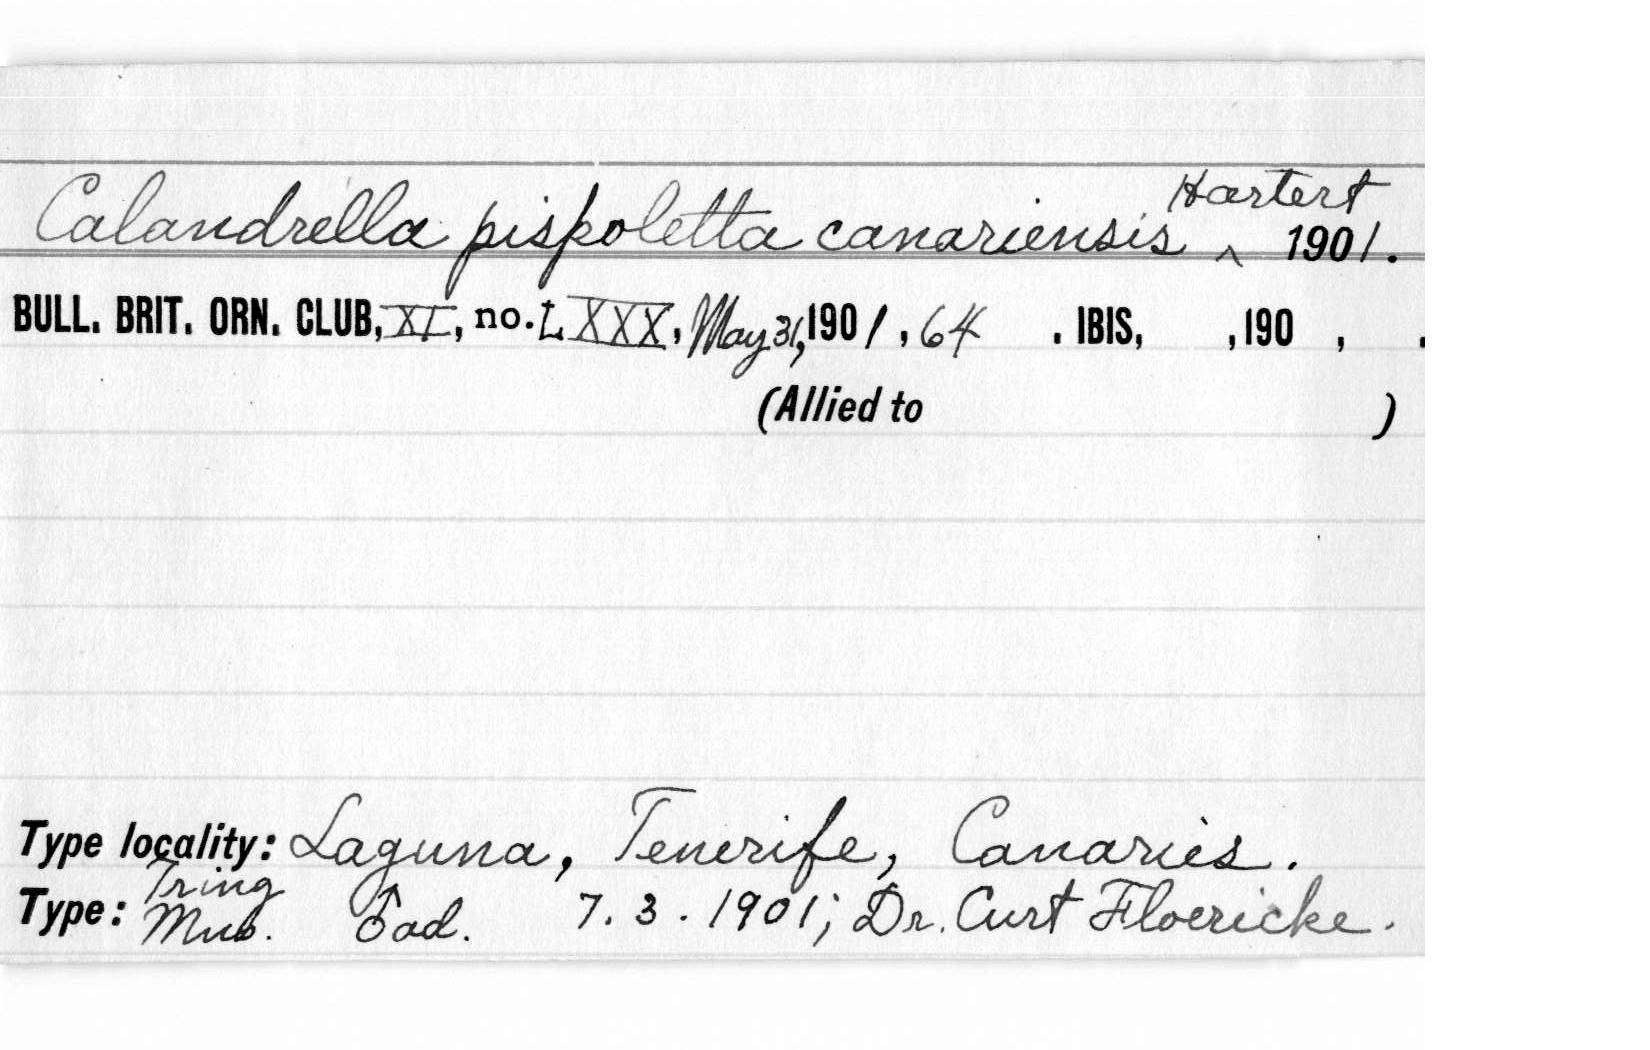 Calandrella pispoletta canariensis ^ Hartert 1901.
BULL. BRIT. ORN. CLUB, XI, no. LXXX, May 31, 1901, 64 . IBIS, , 190 , .
(Allied to )
Type locality: Laguna, Tenerife, Canaries.
Type: Tring Mus. ♂ad. 7.3.1901; Dr. Curt Floericke.